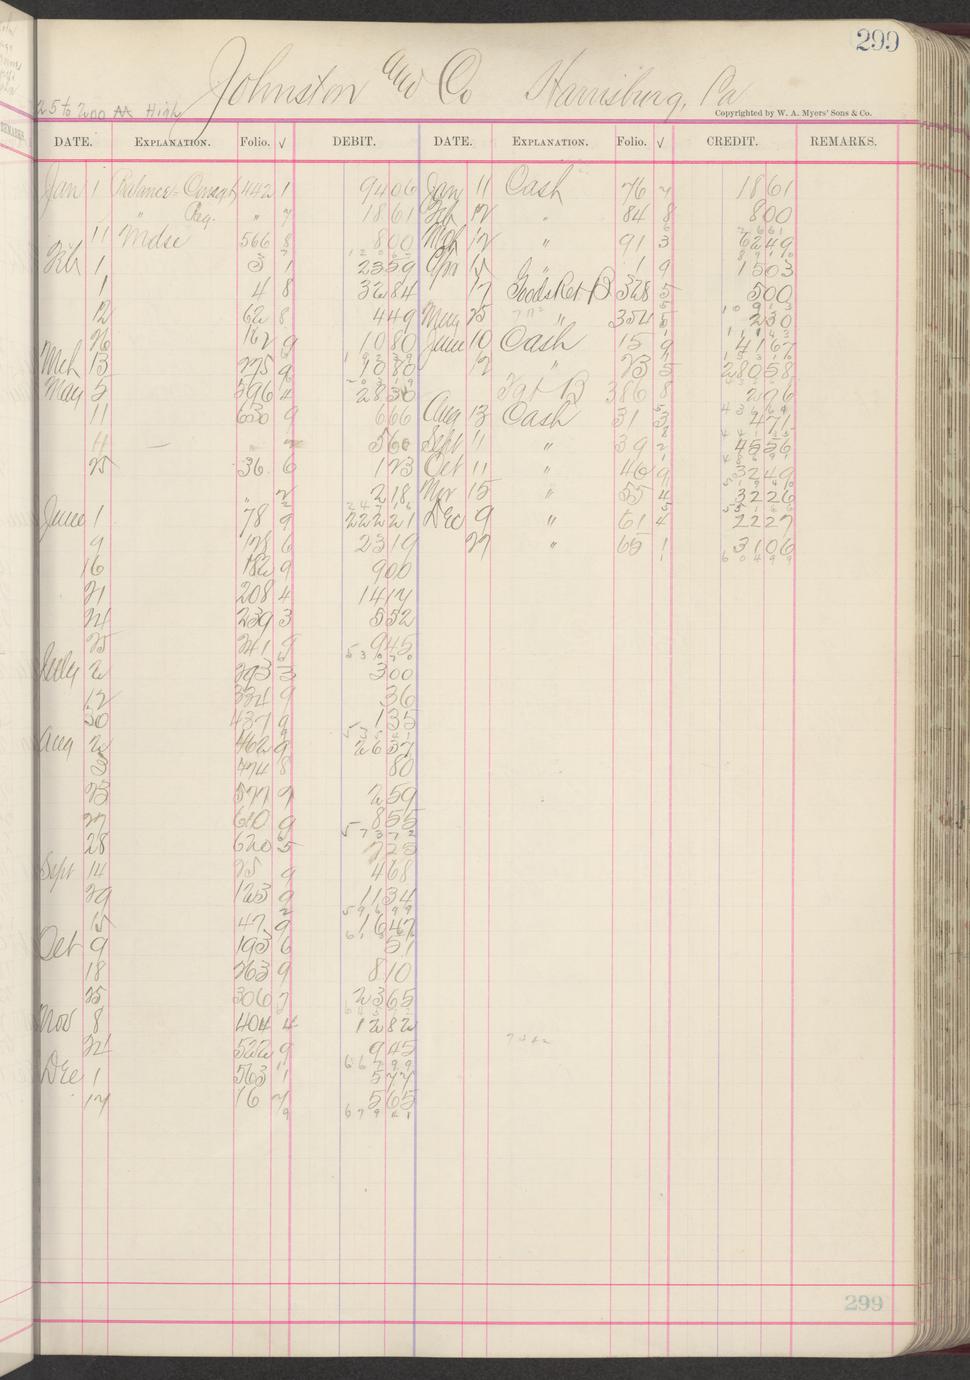 299
Johnston and Co Harrisburg, Pa
25 to 200 M High
Copyrighted by W. A. Myers' Sons & Co.
DATE. EXPLANATION. Folio. √ DEBIT. DATE. EXPLANATION. Folio. √ CREDIT. REMARKS.
Jan 1 Balance - Consgt 442 1 9406 Jan 11 Cash 76 7 1861
" Reg. " 7 1861 Feb 12 " 84 8 800
11 Mdse 566 8 800 Mch 12 " 91 3 6249
Feb 1 3 1 2359 Apr 15 " 1 9 1503
1 4 8 3284 17 Goods Ret B 328 5 500
12 62 8 449 May 25 354 5 230
26 162 9 1080 June 10 Cash 15 9 4167
Mch 13 275 9 1080 12 23 5 28058
May 5 596 4 2830 386 8 296
11 630 9 666 Aug 13 Cash 31 3 471
4 560 Sept 11 " 39 2 4556
25 36 6 123 Oct 11 " 46 9 3249
" 2 218 Nov 15 " 55 4 3226
June 1 78 9 22221 Dec 9 " 61 4 2227
9 128 6 2319 27 " 65 1 3106
16 182 9 900
21 208 4 1417
24 239 3 552
25 241 9 945
53670
July 2 293 3 300
12 324 9 36
30 437 9 135
Aug 2 462 9 2657
3 474 8 80
23 577 9 259
27 610 9 855
57372
28 620 5 725
Sept 14 25 9 468
29 123 9 1134
59699
15 47 9 1647
Oct 9 193 6 51
18 263 9 810
25 306 7 2365
Nov 8 404 4 1282
24 522 9 945
66299
Dec 1 563 1 577
17 16 7 565
299